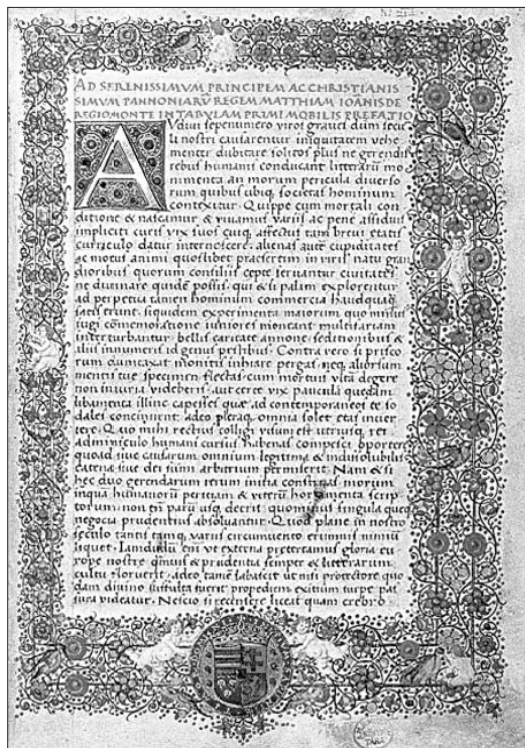 AD SERENISSIMVM PRINCIPEM AC CHRISTIANIS
SIMVM PANNONIARV̄ REGEM MATTHIAM IOANIS DE
REGIOMONTE IN TABVLAM PRIMI MOBILIS PREFATIO
AVdiui sepenumero viros graues dum secu
li nostri causarentur iniquitatem vehe
menter dubitare solitos plus ne gerendis
rebus humanis conducant litterarū mo
numenta an morum pericula diuerso
rum quibus ubiq societas hominum
contexitur. Quippe cum mortali con
ditione & nascamur & viuamus variis ac pene assiduis
impliciti curis vix suos cuiq affectus tam breui etatis
curriculo datur internoscere: alienas autē cupiditates
ac motus animi quoslibet praesertim in viris natu gran
dioribus quorum consiliis cepte seruantur ciuitates
ne diuinare quidē possis. qui & si palam explorentur
ad perpetua tamen hominum commercia haudquaq
satis erunt. siquidem experimenta maiorum quo minus
iugi cōmemoratione iuniores moneant multifariam
interturbantur. bellis caritate annone seditionibus &
aliis innumeris id genus pestibus. Contra vero si prisco
rum dumtaxat monitis inhiare pergas neq aliorsum
mentis tue specimen flectas. cum mortuis vitā degere
non iniuria videberis. aut certe vix paucula quedam
libamenta illinc capesses quae ad contemporaneos te so
dales concinnent. adeo pleraq omnia solet etas inuer
tere. Quo mihi rectius colligi visum est utriusq rei
adminiculo humani cursus habenas compesci oportere
quoad siue causarum omnium legitima & indissolubilis
catena siue dei summi arbitrium permiserit. Nam & si
hec duo gerendarum rerum initia morum
inqua humanorū periciam & veterū scrip
torum. non tn̄ parū usq deerit quominus singula queq
negocia prudentius absoluantur. Quod plane in nostro
seculo tantis tamq variis circumuento erumnis nimiū
liquet. Iamdudū em̄ vt externa pretereamus gloria eu
rope nostre q̄muis & prudentia semper & litterarum
cultu floruerit. adeo tamē labascit ut nisi protectore quo
dam diuino suffulta fuerit. propediem exitium turpe pas
sura videatur. Nescio si recensere liceat quam crebro